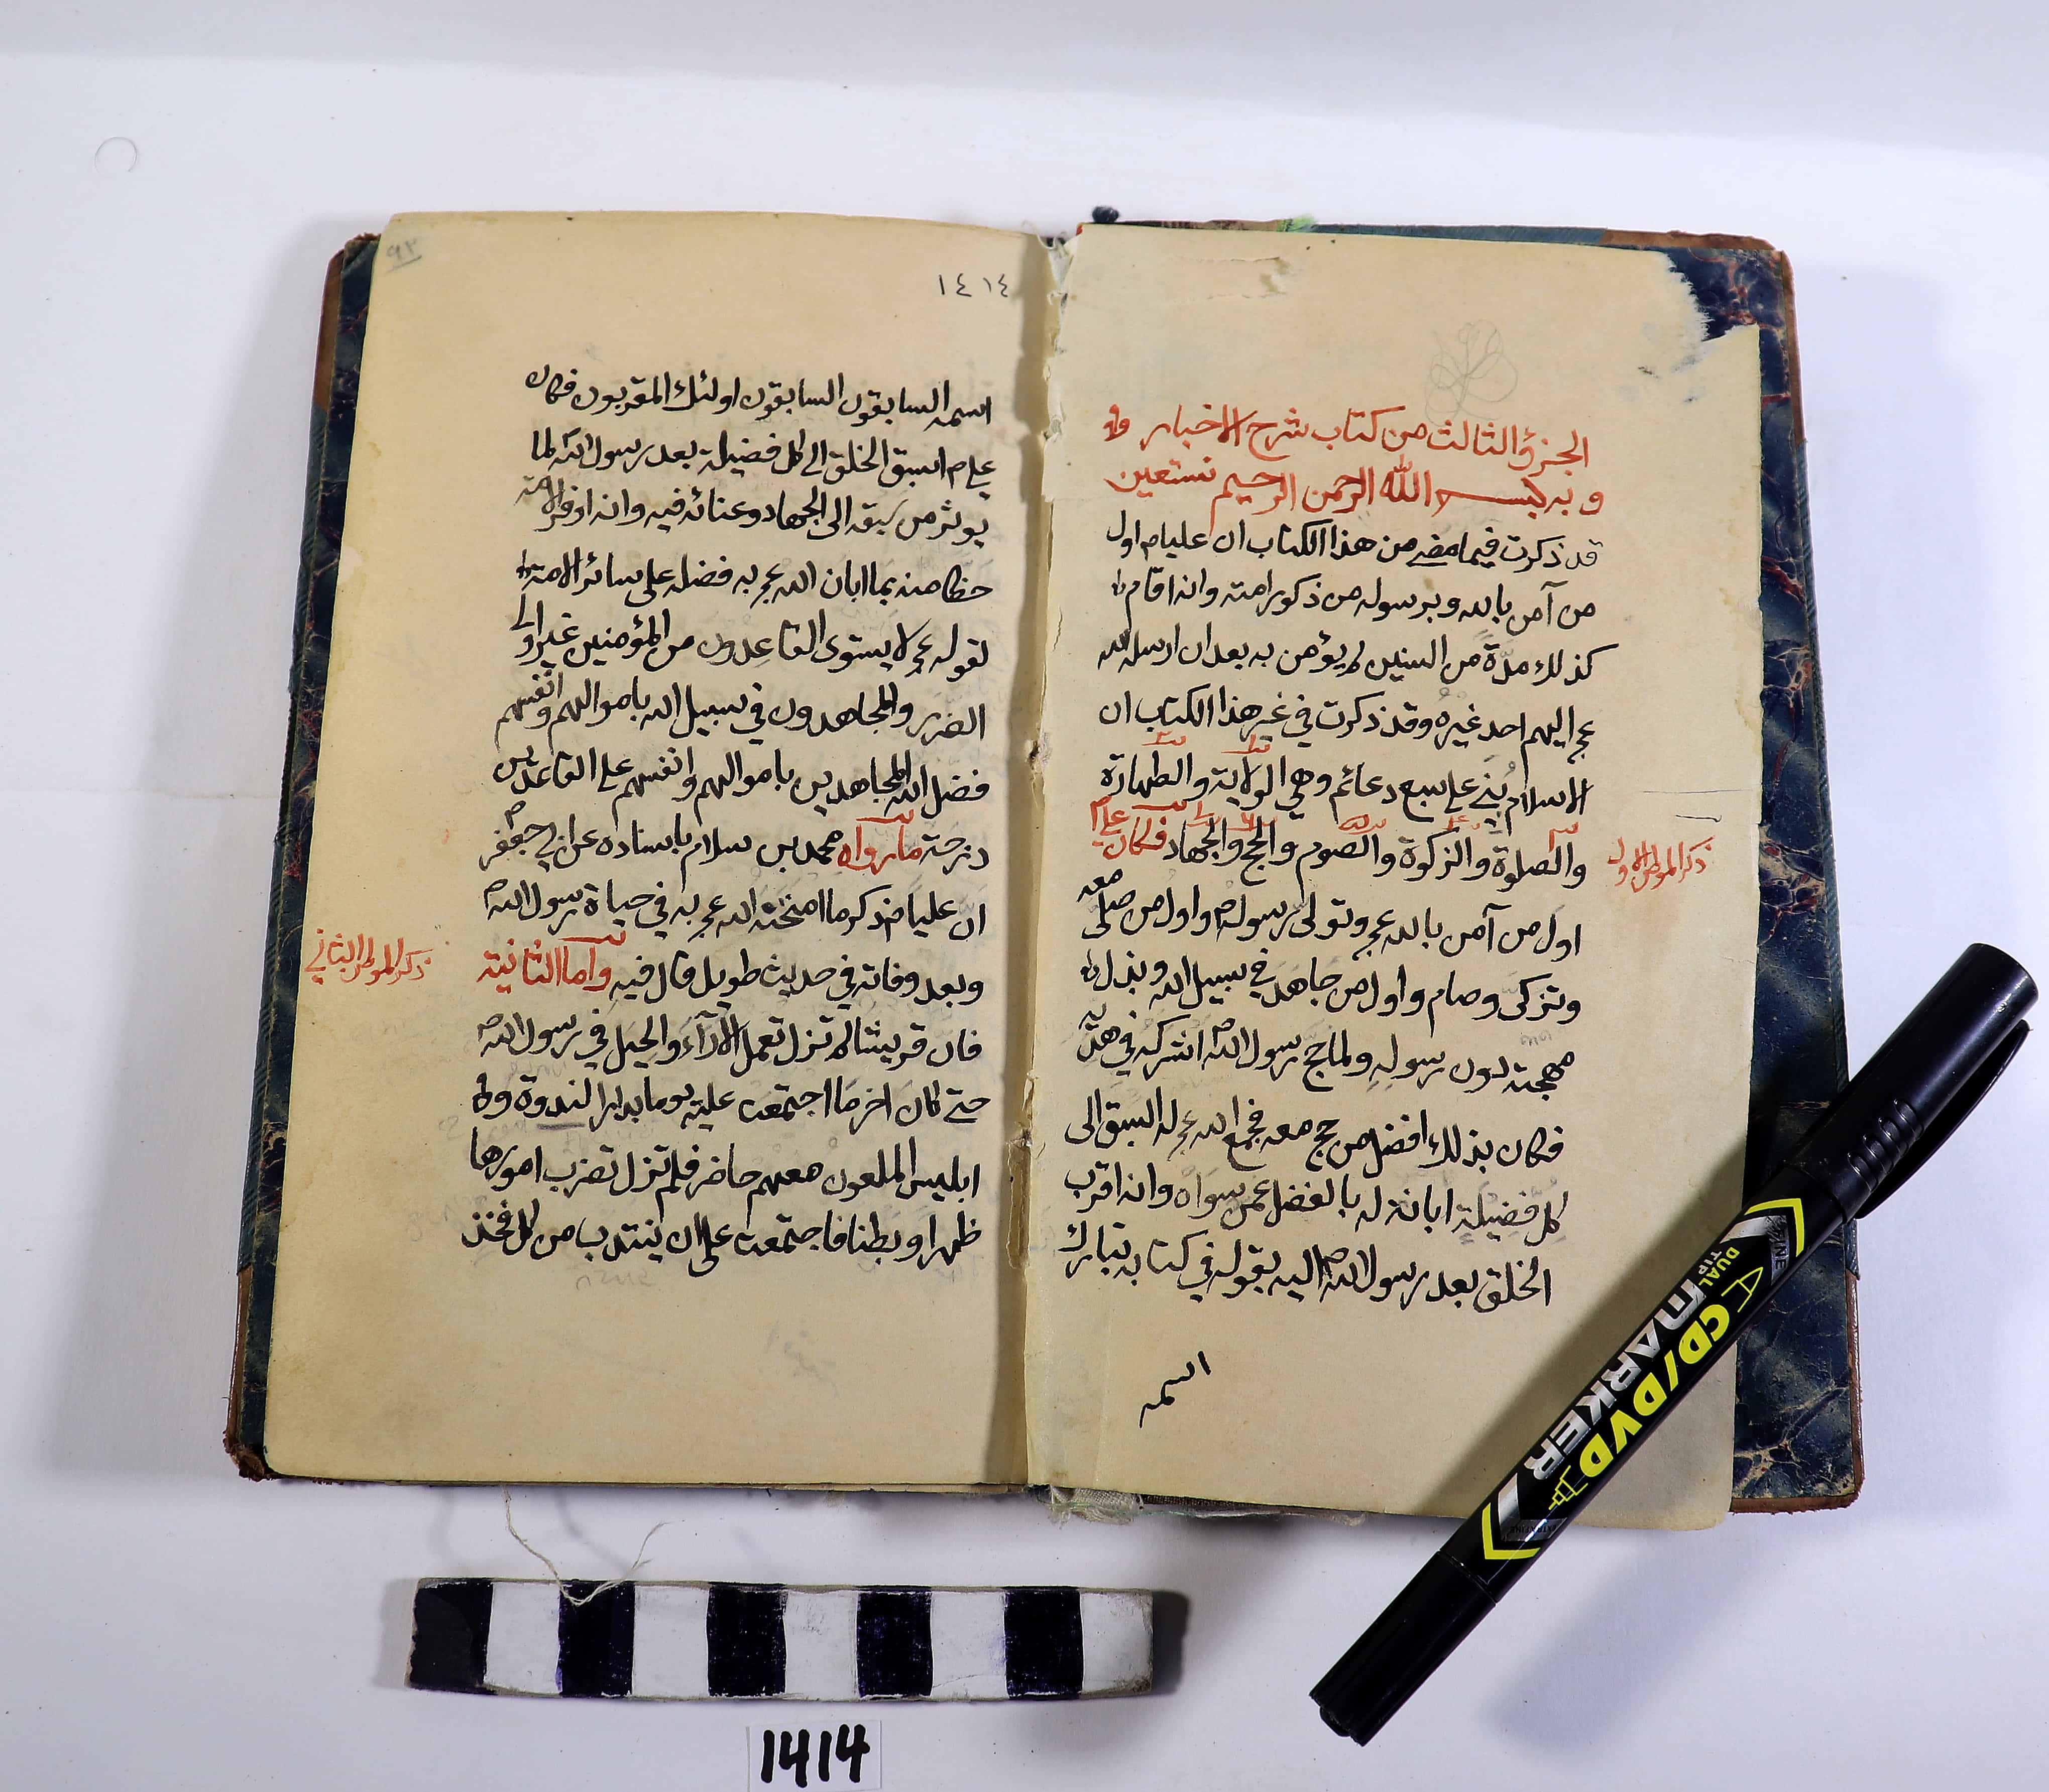 الجزؤ الثالث من كتاب شرح الاخبار
و به بسم الله الرحمن الرحيم نستعين
قد ذكرت فيما مضى من هذا الكتاب ان عليا م اول
من آمن بالله وبرسوله من ذكور امته وانه اقام
كذلك مدة من السنين لم يؤمن به بعد ان ارسله الله
عج اليهم احد غيره وقد ذكرت في غير هذا الكتاب ان
الاسلام بُني على سبع دعائم وهي الولاية والطهارة
والصلوة والزكوة والصوم والحج والجهاد فكان علي م
ذكر الموطن الاول
اول من آمن بالله عج وتولى رسوله ص واول من صلى معه
وتزكى وصام واول من جاهد في سبيل الله وبذل
مهجته دون رسوله ولما حج رسول الله ص اشركه في هديه
فكان بذلك افضل من حج معه فجمع الله عج له السبق الى
كل فضيلة ابانة له بالفضل عمن سواه وانه اقرب
الخلق بعد رسول الله ص اليه بقوله في كتابه تبارك
اسمه
٩٣
١٤١٤
اسمه السابقون السابقون اولئك المقربون فكان
علي م اسبق الخلق الى كل فضيلة بعد رسول الله لما
يوثر من سبقه الى الجهاد وعنائه فيه وانه اوفر الامة
حظا منه بما ابان الله عج به فضله على سائر الامة
لقوله عج لا يستوى القاعدون من المؤمنين غير اولى
الضرر والمجاهدون في سبيل الله باموالهم وانفسهم
فضل الله المجاهدين باموالهم وانفسهم على القاعدين
درجة ما رواه محمد بن سلام باسناده عن ابي جعفر ص
ان عليا م ذكر ما امتحنه الله عج به في حياة رسول الله ص
وبعد وفاته في حديث طويل قال فيه واما الثانية
ذكر الموطن الثاني
فان قريشا لم تزل تعمل الآراء والحيل في رسول الله ص
حتى كان اخر ما اجتمعت عليه يوما بدار الندوة و
ابليس الملعون معهم حاضر فلم تزل تضرب امورها
ظهرا وبطنا فاجتمعت على ان ينتدب من كل فخذ
DUAL TIP
CD/DVD
MARKER
1414